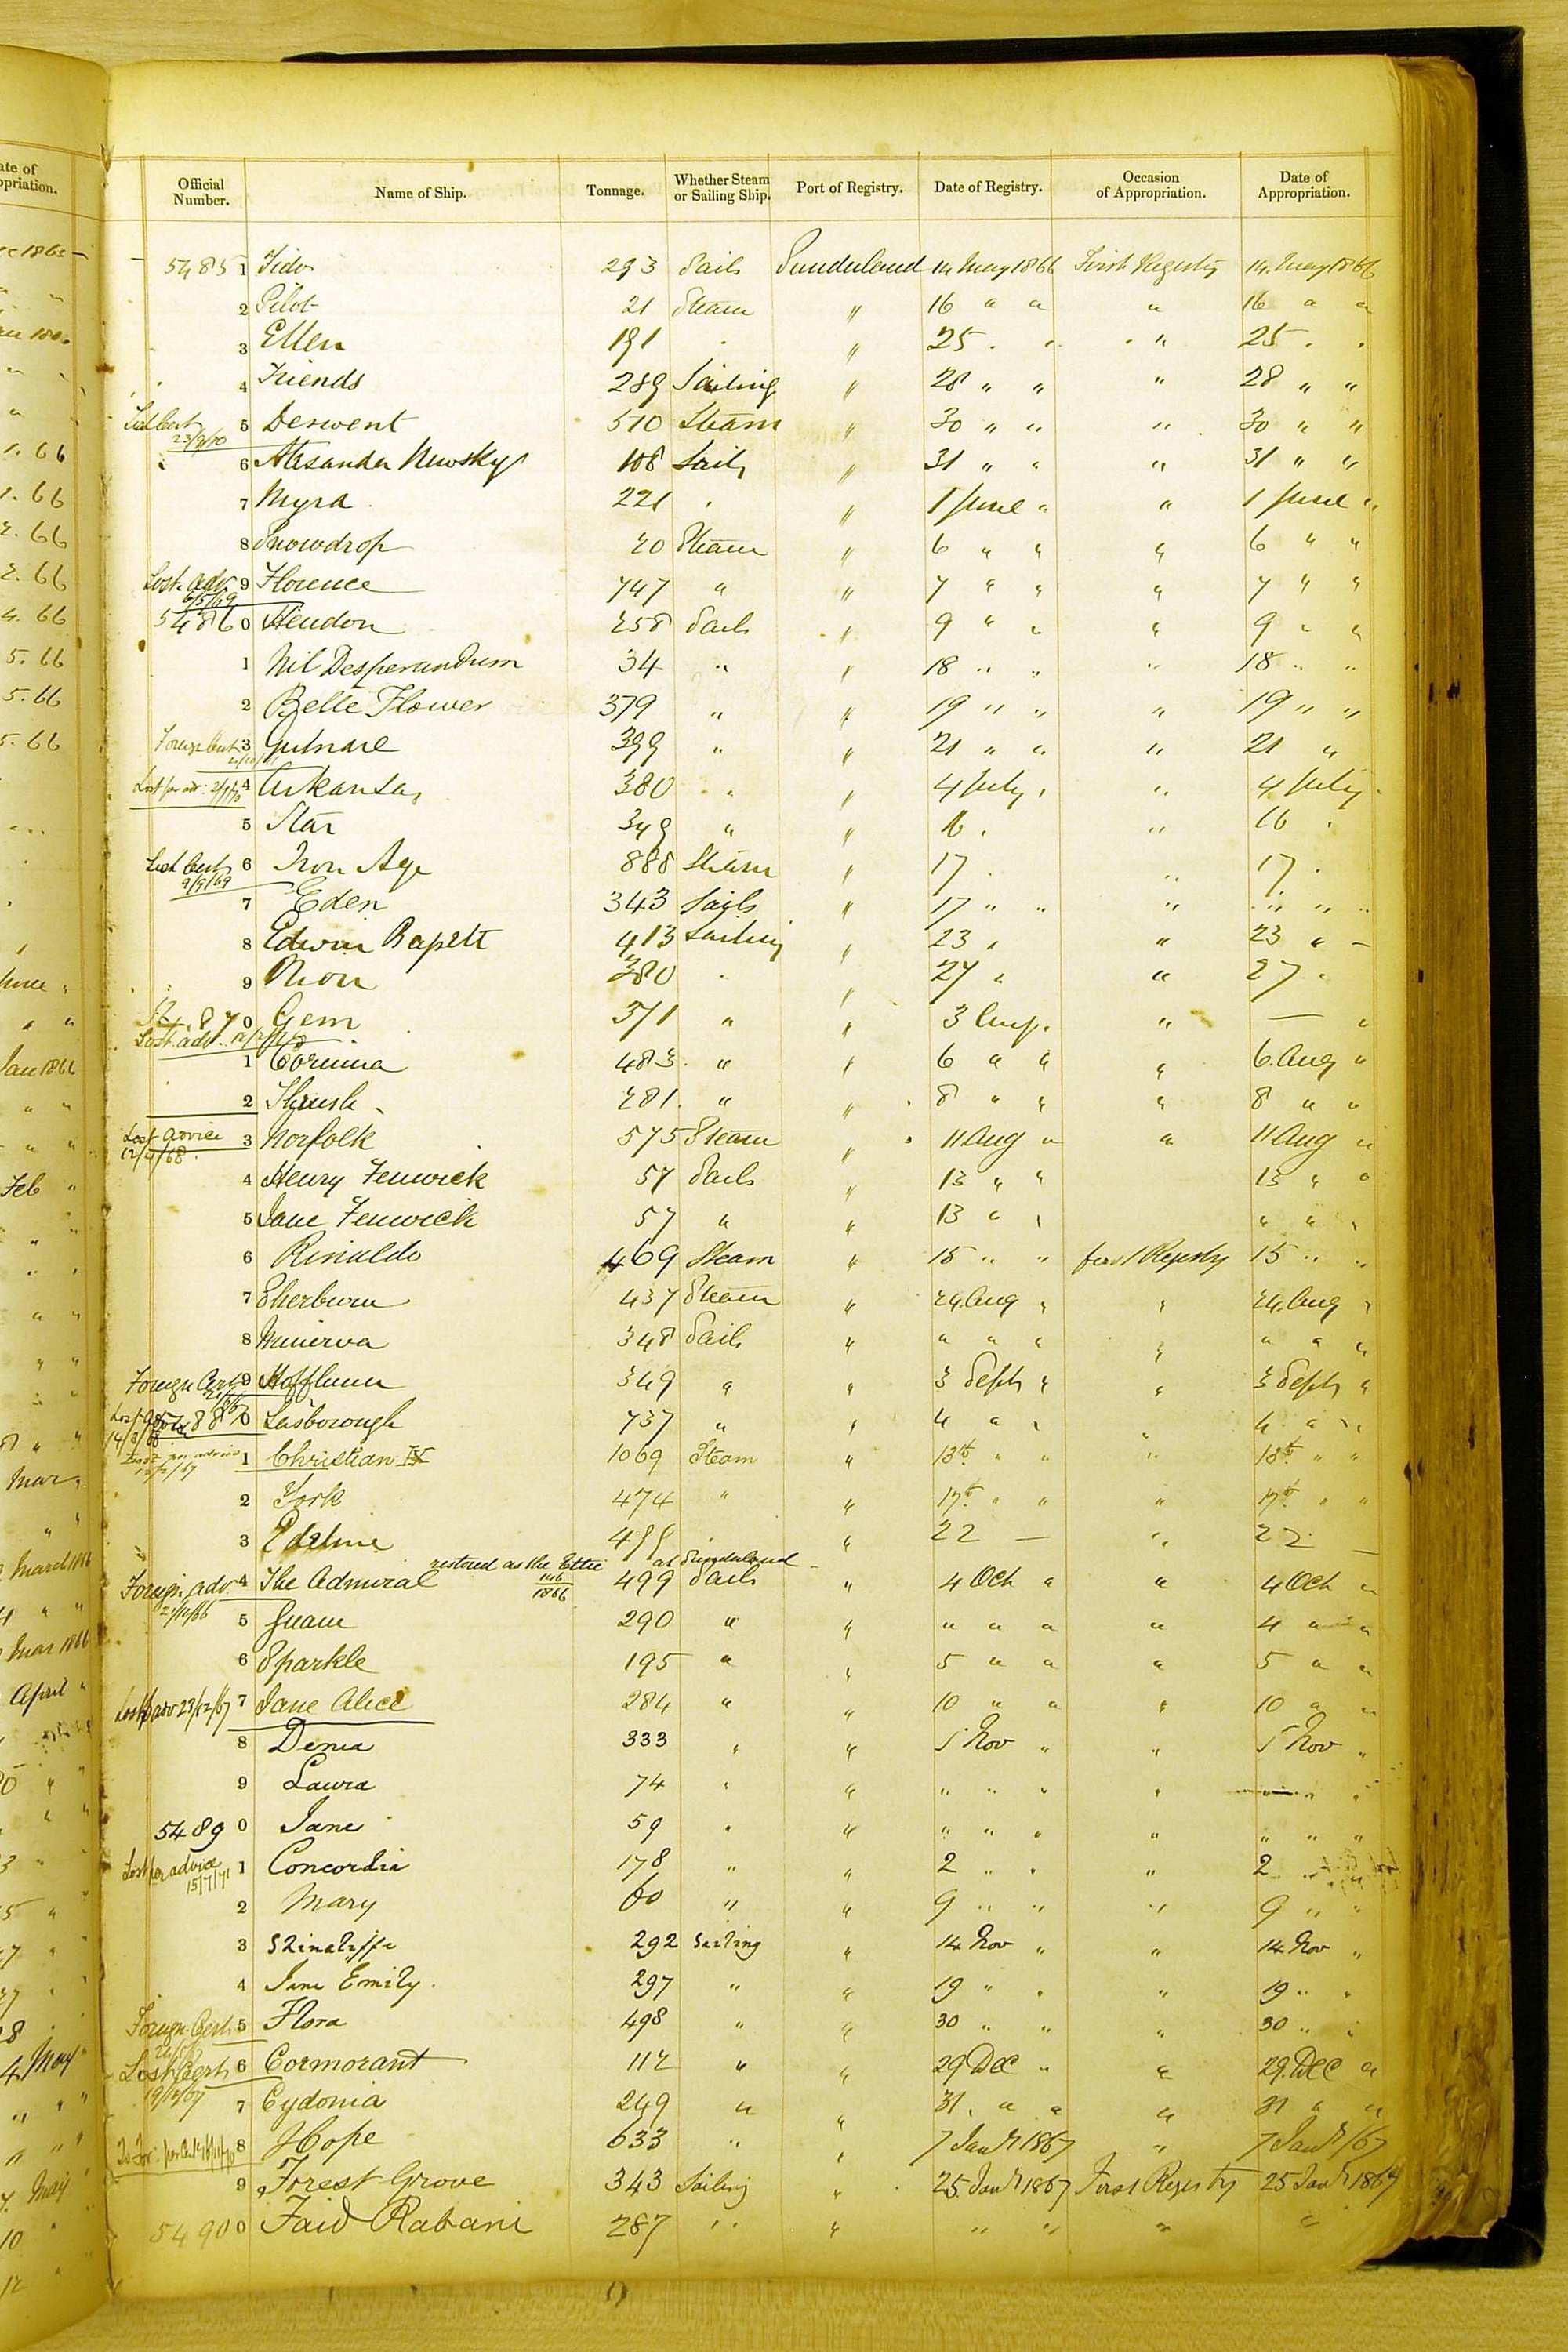 Official Number. Name of Ship. Tonnage. Whether Steam or Sailing Ship. Port of Registry. Date of Registry. Occasion of Appropriation. Date of Appropriation.
5485 1 Fido 293 Sails Sunderland 14 May 1866 First Registry 14. May 1866
2 Pilot 21 Steam " 16 " " " 16 " "
3 Ellen 191 " 25 . " " 25 . .
4 Friends 289 Sailing " 28 " " " 28 " "
5 Derwent 510 Steam " 30 " " " 30 " "
6 Alexander Newsky 108 Sails " 31 " " " 31 " "
7 Myra 221 " " 1 June " " 1 June "
8 Snowdrop 20 Steam " 6 " " " 6 " "
Lost adv 6/5/69 9 Florence 747 " " 7 " " " 7 " "
5486 0 Hendon 258 Sails " 9 " " " 9 " "
1 Nil Desperandum 34 " " 18 " " " 18 " "
2 Belle Flower 379 " " 19 " " " 19 " "
Foreign Cert 3 Gulnare 399 " " 21 " " " 21 "
Lost per adv: 4 Arkansas 380 " " 4 July " " 4 July
5 Star 349 " " 16 . " 16 .
Lost Cert 9/9/69 6 Iron Age 888 Steam " 17 . " 17 .
7 Eden 343 Sails " 17 " " " " " "
8 Edwin 413 Sailing " 23 " " 23 " —
9 380 " " 27 " " 27 "
87 0 Gem 371 " " 3 Aug. " — "
Lost adv.
1 Corinna 483 " " 6 " " " 6. Aug "
2 Thrush 281. " " 8 " " " 8 " "
Lost advice 3 Norfolk 575 Steam " 11 Aug " " 11 Aug "
4 Henry Fenwick 57 Sails " 13 " " 13 " "
5 Jane Fenwick 57 " " 13 " " " " "
6 Rinaldo 469 Steam " 15 " " first Registry 15 " "
7 Sherburn 437 Steam " 24. Aug " " 24. Aug "
8 Minerva 348 Sails " " " " " " " "
Foreign Cert 9 349 " " 3 Septr " " 3 Septr "
88 0 Lasborough 737 " " 4 " " " 4 " "
Lost per advice 1 Christian IX 1069 Steam " 13th " " " 13th " "
2 York 474 " " 17th " " " 17th " "
3 Edeline " 22 — " 22 —
restored as the Ettie at Sunderland
Foreign adv 4 The Admiral 146/1866 499 Sails " 4 Oct " " 4 Oct "
5 Guam 290 " " " " " " 4 " "
6 Sparkle 195 " " 5 " " " 5 " "
Lost p adv 23/12/67 7 Jane Alice 284 " " 10 " " " 10 " "
8 Denia 333 " " 1 Nov " " 1 Nov "
9 Laura 74 " " " " " " "
5489 0 Jane 59 " " " " " " " " "
Lost per advice 15/7/71 1 Concordia 178 " " 2 " " " 2
2 Mary 60 " " 9 " " " 9 " "
3 Shincliffe 292 Sailing " 14 Nov " " 14 Nov "
4 Jane Emily 297 " " 19 " " " 19 " "
Foreign Cert 5 Flora 498 " " 30 " " " 30 " "
Lost Cert 19/12/67 6 Cormorant 112 " " 29 Dec " " 29. Dec "
7 Cydonia 249 " " 31. " " " 31 " "
8 Hope 633 " " 7 Janr 1867 " 7 Janr/67
9 Forest Grove 343 Sailing " 25. Janr 1867 First Registry 25 Janr 1867
5490 0 Faid Rabani 287 " " " " " "